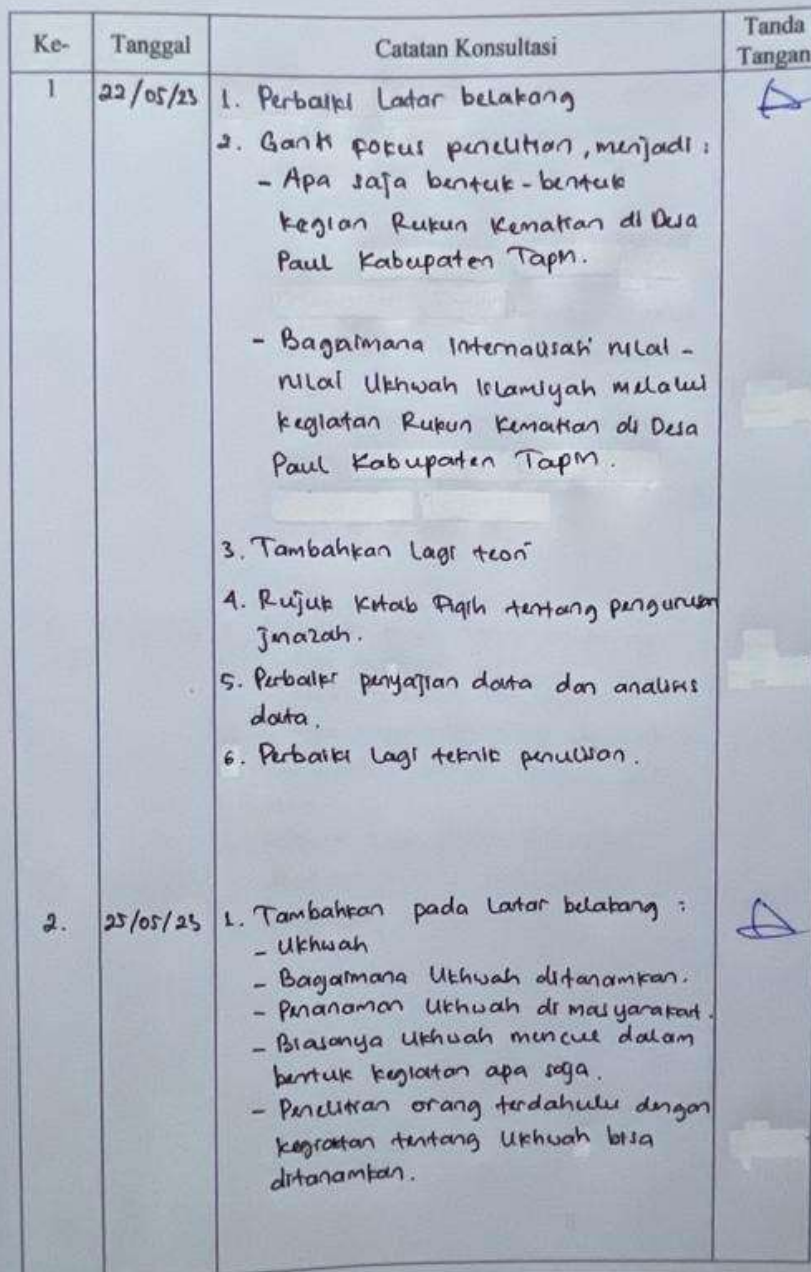 Ke- Tanggal Catatan Konsultasi Tanda Tangan
1 22/05/23 1. Perbaiki Latar belakang
2. Ganti fokus penelitian, menjadi :
- Apa saja bentuk-bentuk
kegian Rukun Kematian di Desa
Paul Kabupaten Tapin.
- Bagaimana Internalisasi nilai-
nilai Ukhwah Islamiyah melalui
kegiatan Rukun Kematian di Desa
Paul Kabupaten Tapin.
3. Tambahkan Lagi teori
4. Rujuk Kitab Fiqih tentang pengurusan
Jnazah.
5. Perbaiki penyajian data dan analisis
data.
6. Perbaiki Lagi teknik penulisan.
2. 25/05/23 1. Tambahkan pada Latar belakang :
- Ukhwah
- Bagaimana Ukhwah ditanamkan.
- Penanaman Ukhwah di masyarakat.
- Biasanya Ukhwah muncul dalam
bentuk kegiatan apa saja.
- Penelitian orang terdahulu dengan
kegiatan tentang Ukhwah bisa
ditanamkan.